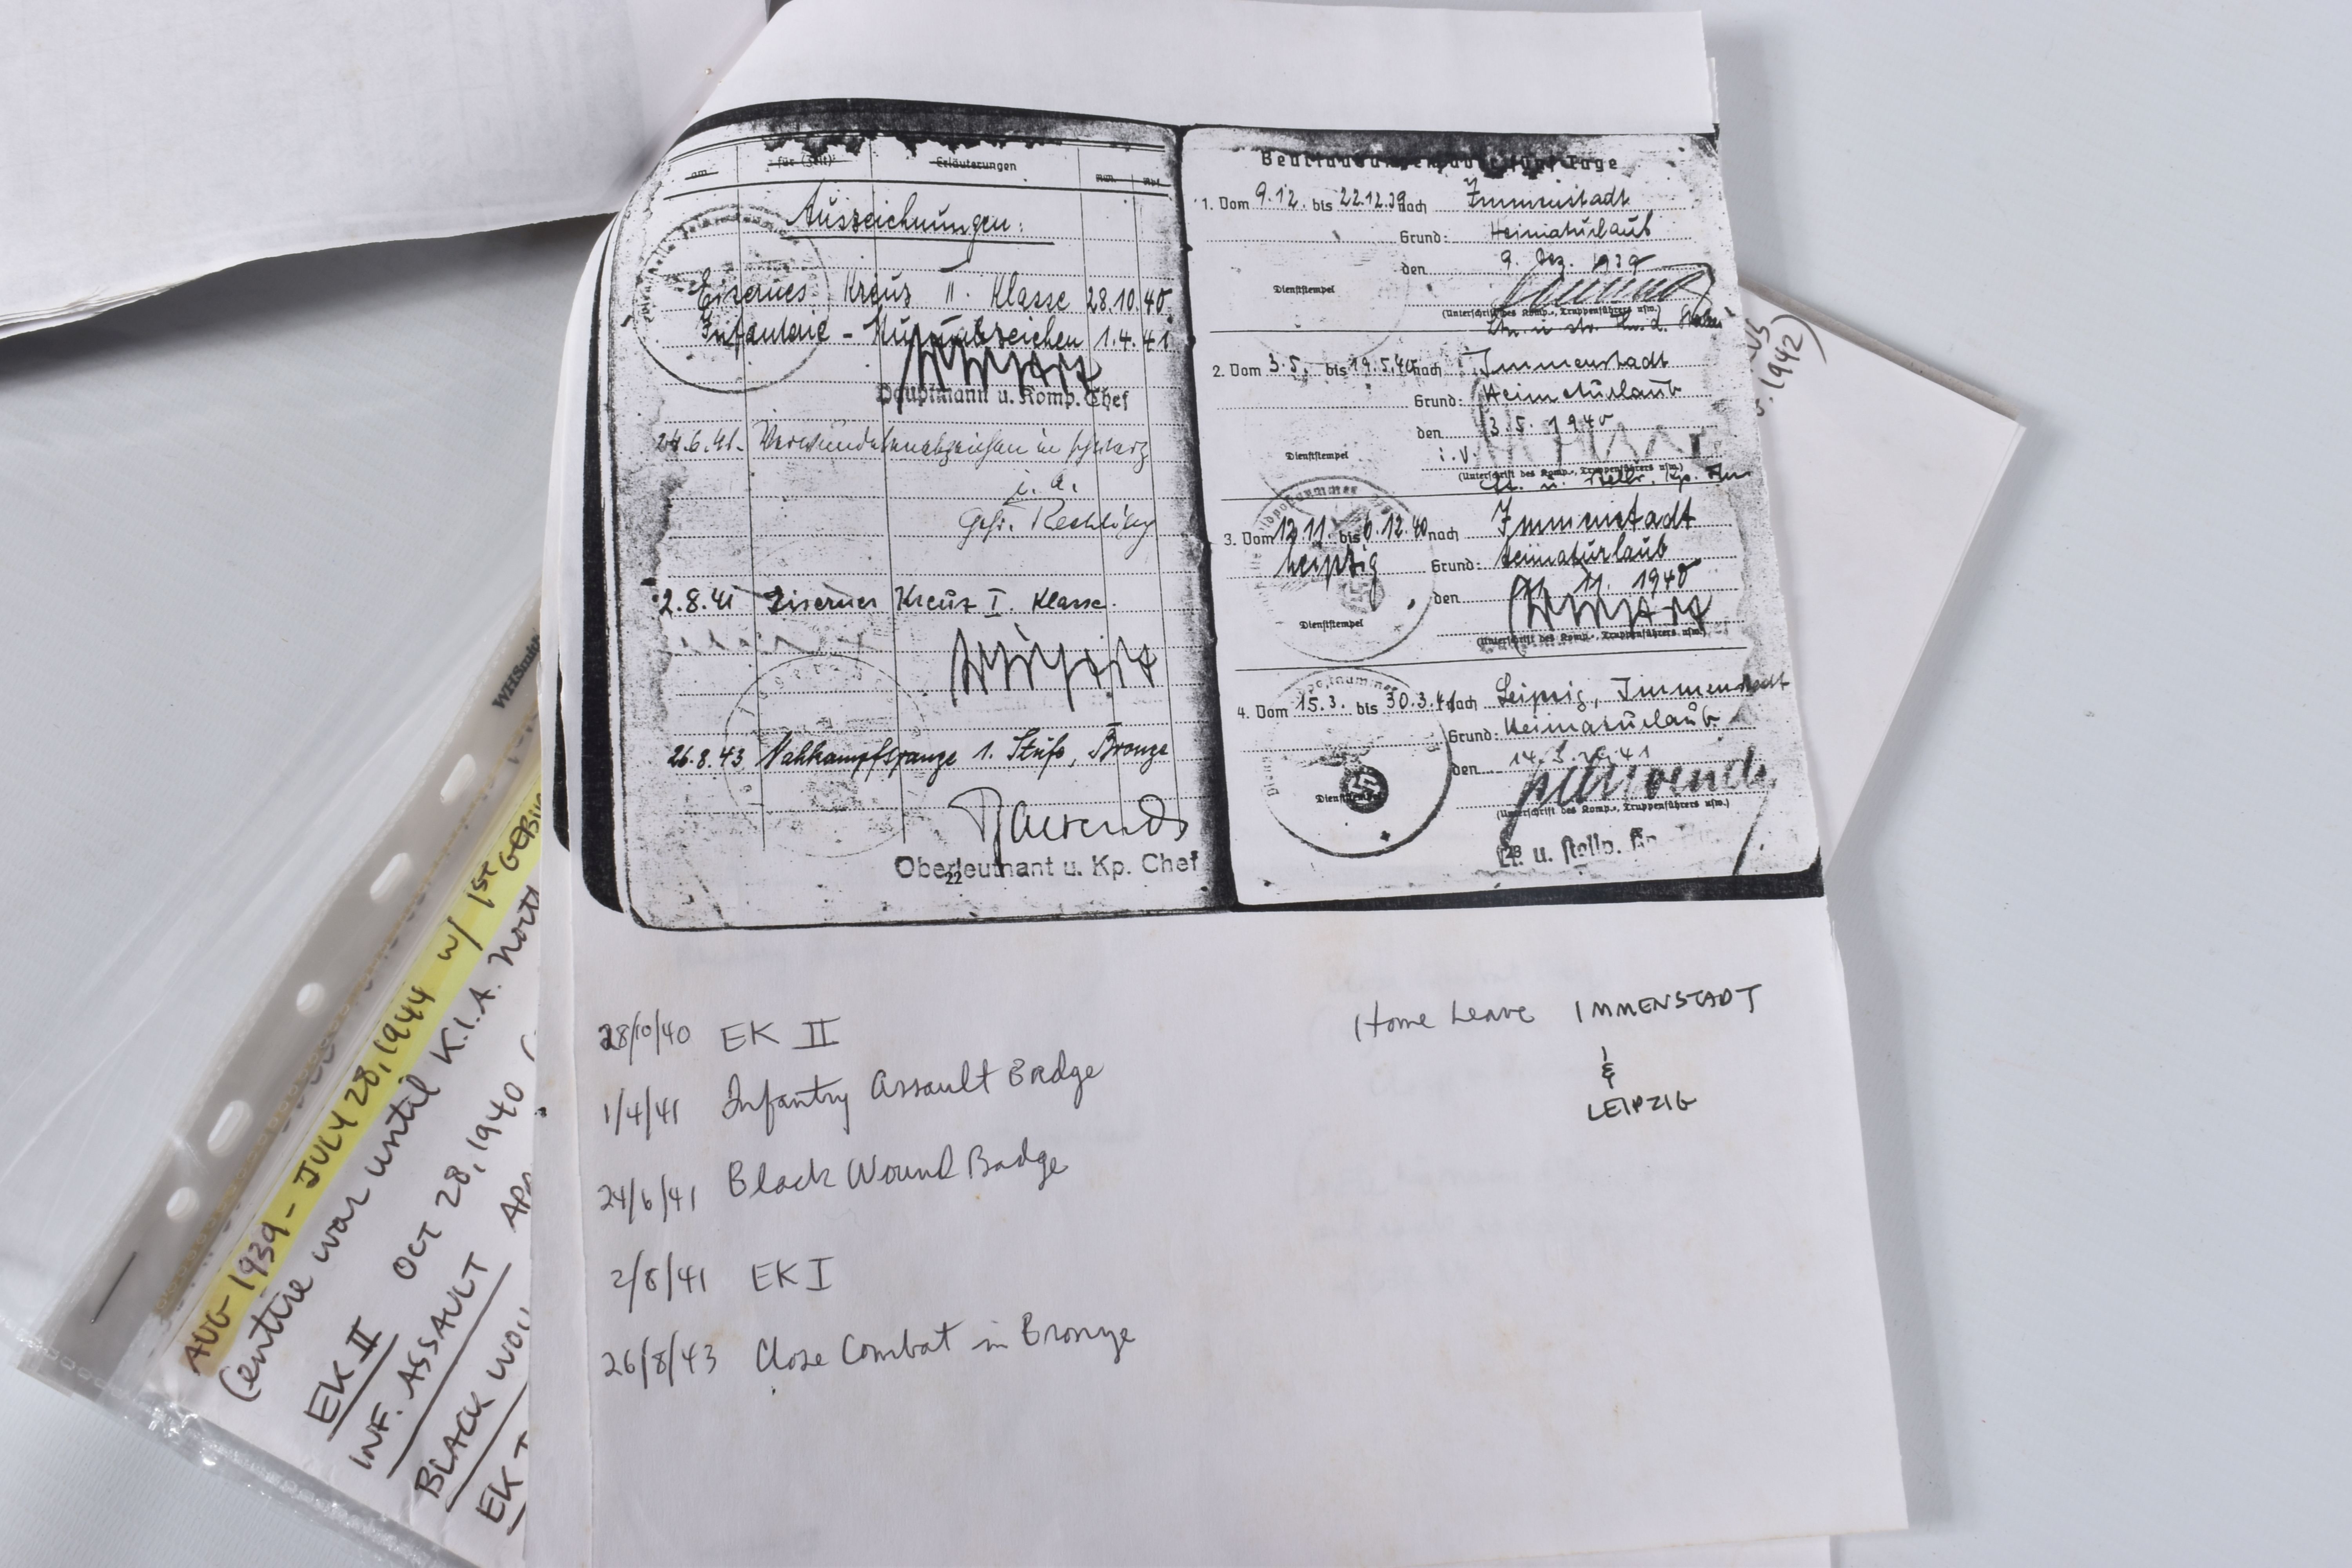 am für (Zeit) Erläuterungen
Auszeichnungen:
Eisernes Kreuz II. Klasse 28.10.40
Infanterie - Sturmabzeichen 1.4.41
Hauptmann u. Komp. Chef
24.6.41. Verwundetenabzeichen in schwarz
i. A.
Gefr.
2.8.41 Eisernes Kreuz I. Klasse.
26.8.43 Nahkampfspange 1. Stufe, Bronze
Oberleutnant u. Kp. Chef
22
Beurlaubungen über fünf Tage
1. Vom 9.12. bis 22.12.39 nach Immenstadt
Grund: Heimaturlaub
den 9. Dez. 1939
Dienststempel
(Unterschrift des Komp.-, Truppenführers usw.)
2. Vom 3.5. bis 19.5.40 nach Immenstadt
Grund: Heimaturlaub
den 3.5. 1940
Dienststempel
i.V.
(Unterschrift des Komp.-, Truppenführers usw.)
3. Vom 12.11. bis 6.12.40 nach Immenstadt
Leipzig Grund: Heimaturlaub
den 11. 1940
Dienststempel
(Unterschrift des Komp.-, Truppenführers usw.)
4. Vom 15.3. bis 30.3.41 nach Leipzig, Immenstadt
Grund: Heimaturlaub
den 14.3. 1941
Dienststempel
(Unterschrift des Komp.-, Truppenführers usw.)
Lt. u. stellv.
23
28/10/40 EK II
1/4/41 Infantry Assault Badge
24/6/41 Black Wound Badge
2/8/41 EK I
26/8/43 Close Combat in Bronze
Home Leave IMMENSTADT
&
LEIPZIG
WHSmith
AUG 1939 - JULY 28, 1944 w/ 1ST GEBI
(entire war until K.I.A. North
EK II OCT 28, 1940
INF. ASSAULT AP
BLACK WOU
EK I
1942)